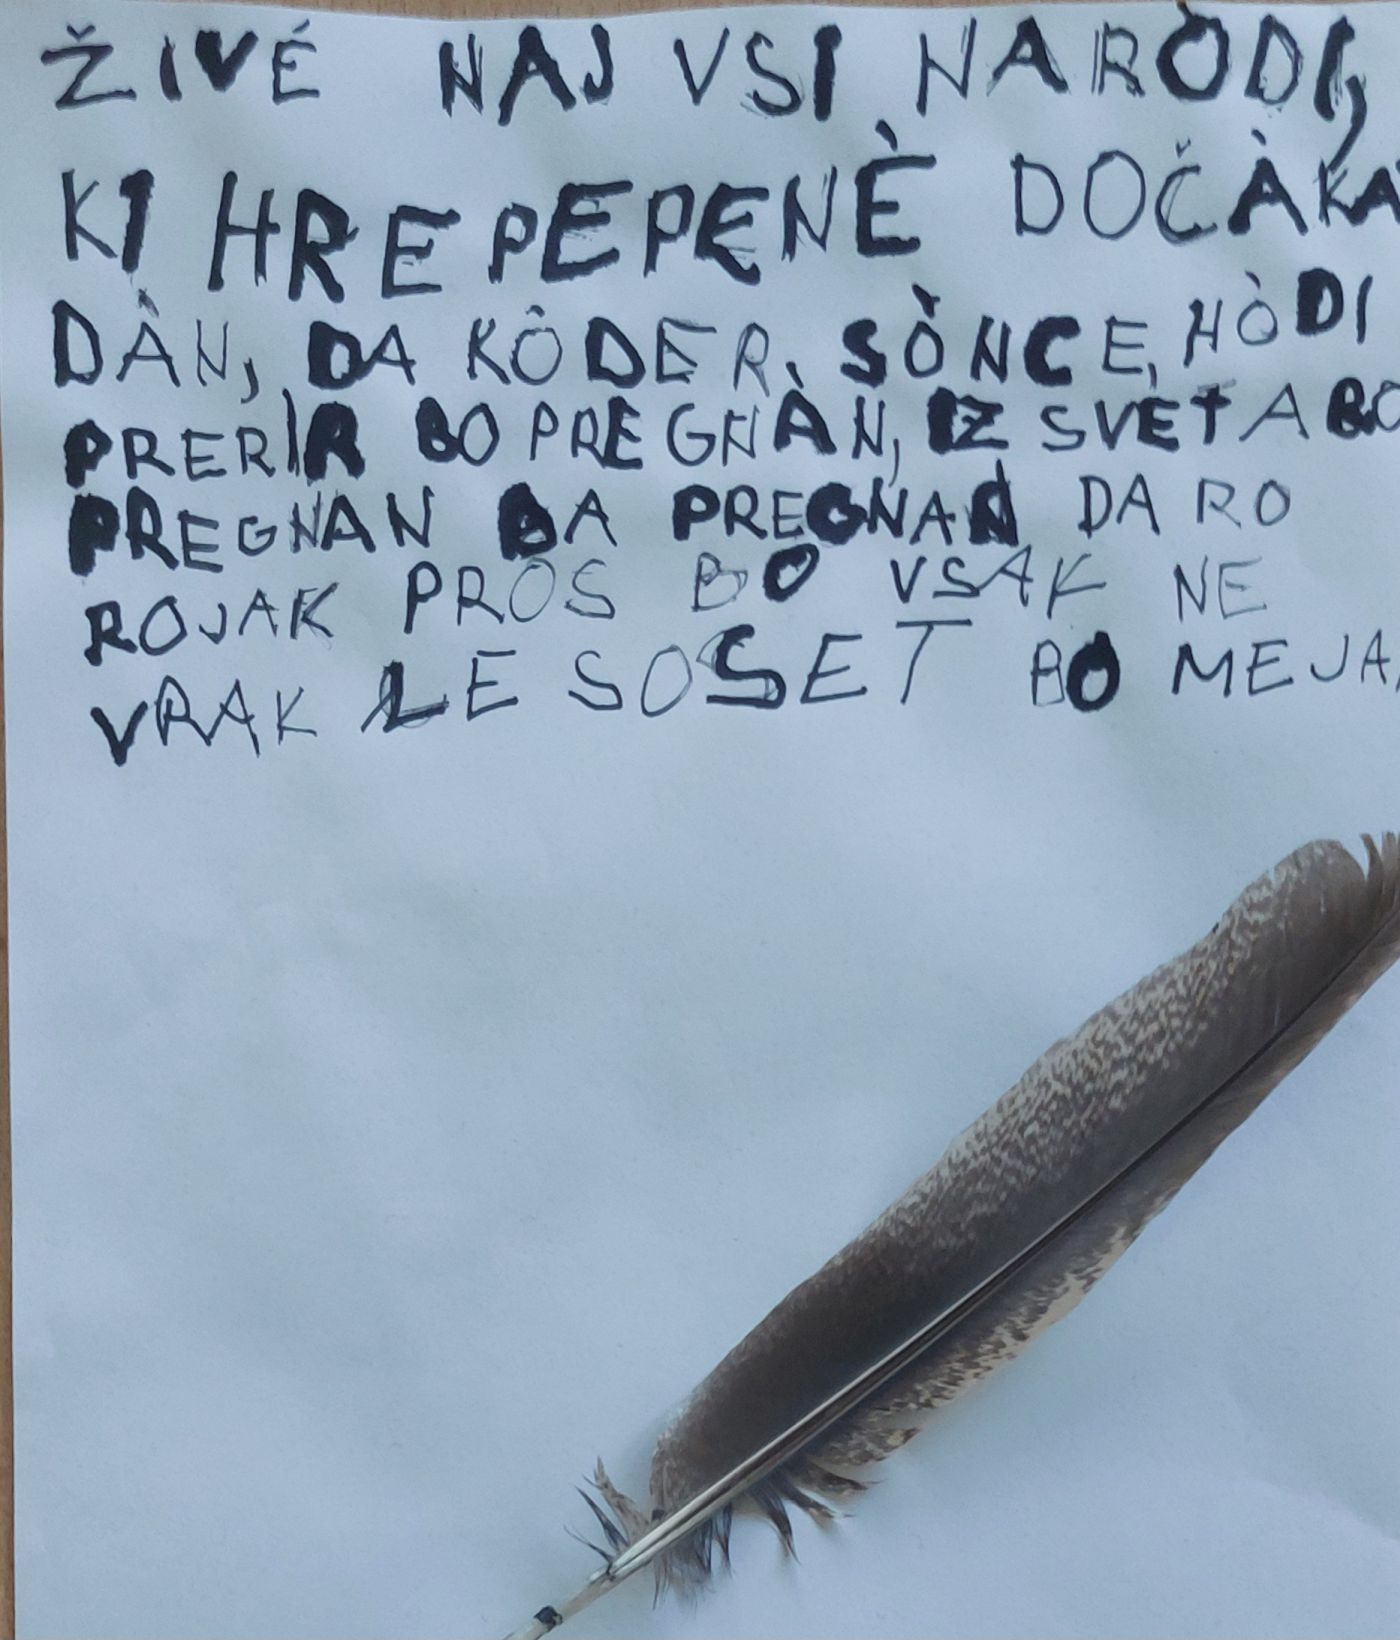 ŽIVÉ NAJ VSI NARÒDI,
KI HREPEPENÈ DOČÀKA
DÀN, DA KÒDER, SÒNCE, HÒDI
PRERIR BO PREGNÀN, IZ SVETA BO
PREGNAN BA PREGNAN DA RO
ROJAK PROS BO VSAK NE
VRAK LE SOSET BO MEJA